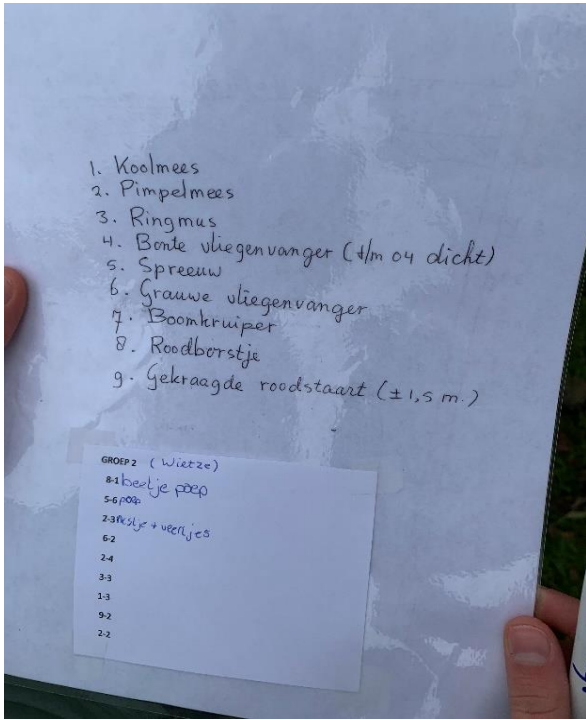 1. Koolmees
2. Pimpelmees
3. Ringmus
4. Bonte vliegenvanger (t/m 04 dicht)
5. Spreeuw
6. Grauwe vliegenvanger
7. Boomkruiper
8. Roodborstje
9. Gekraagde roodstaart (± 1,5 m.)
GROEP 2 (Wietze)
8-1 beetje poep
5-6 poep
2-3 nestje + veertjes
6-2
2-4
3-3
1-3
9-2
2-2